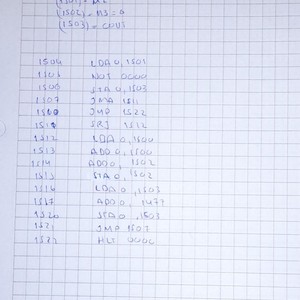 (1502) = MS = 0
(1503) = COUS
1504 LDA 0, 1501
NOT 0000
1506 STA 0, 1503
1507 JMA 1511
JMP 1522
SRJ 1512
1512 LDA 0, 1500
1513 ADD 0, 1500
1514 ADD 0, 1502
1515 STA 0, 1502
LDA 0, 1503
1517 ADD 0, 1477
1520 STA 0, 1503
1521 JMP 1507
1522 HLT 0000